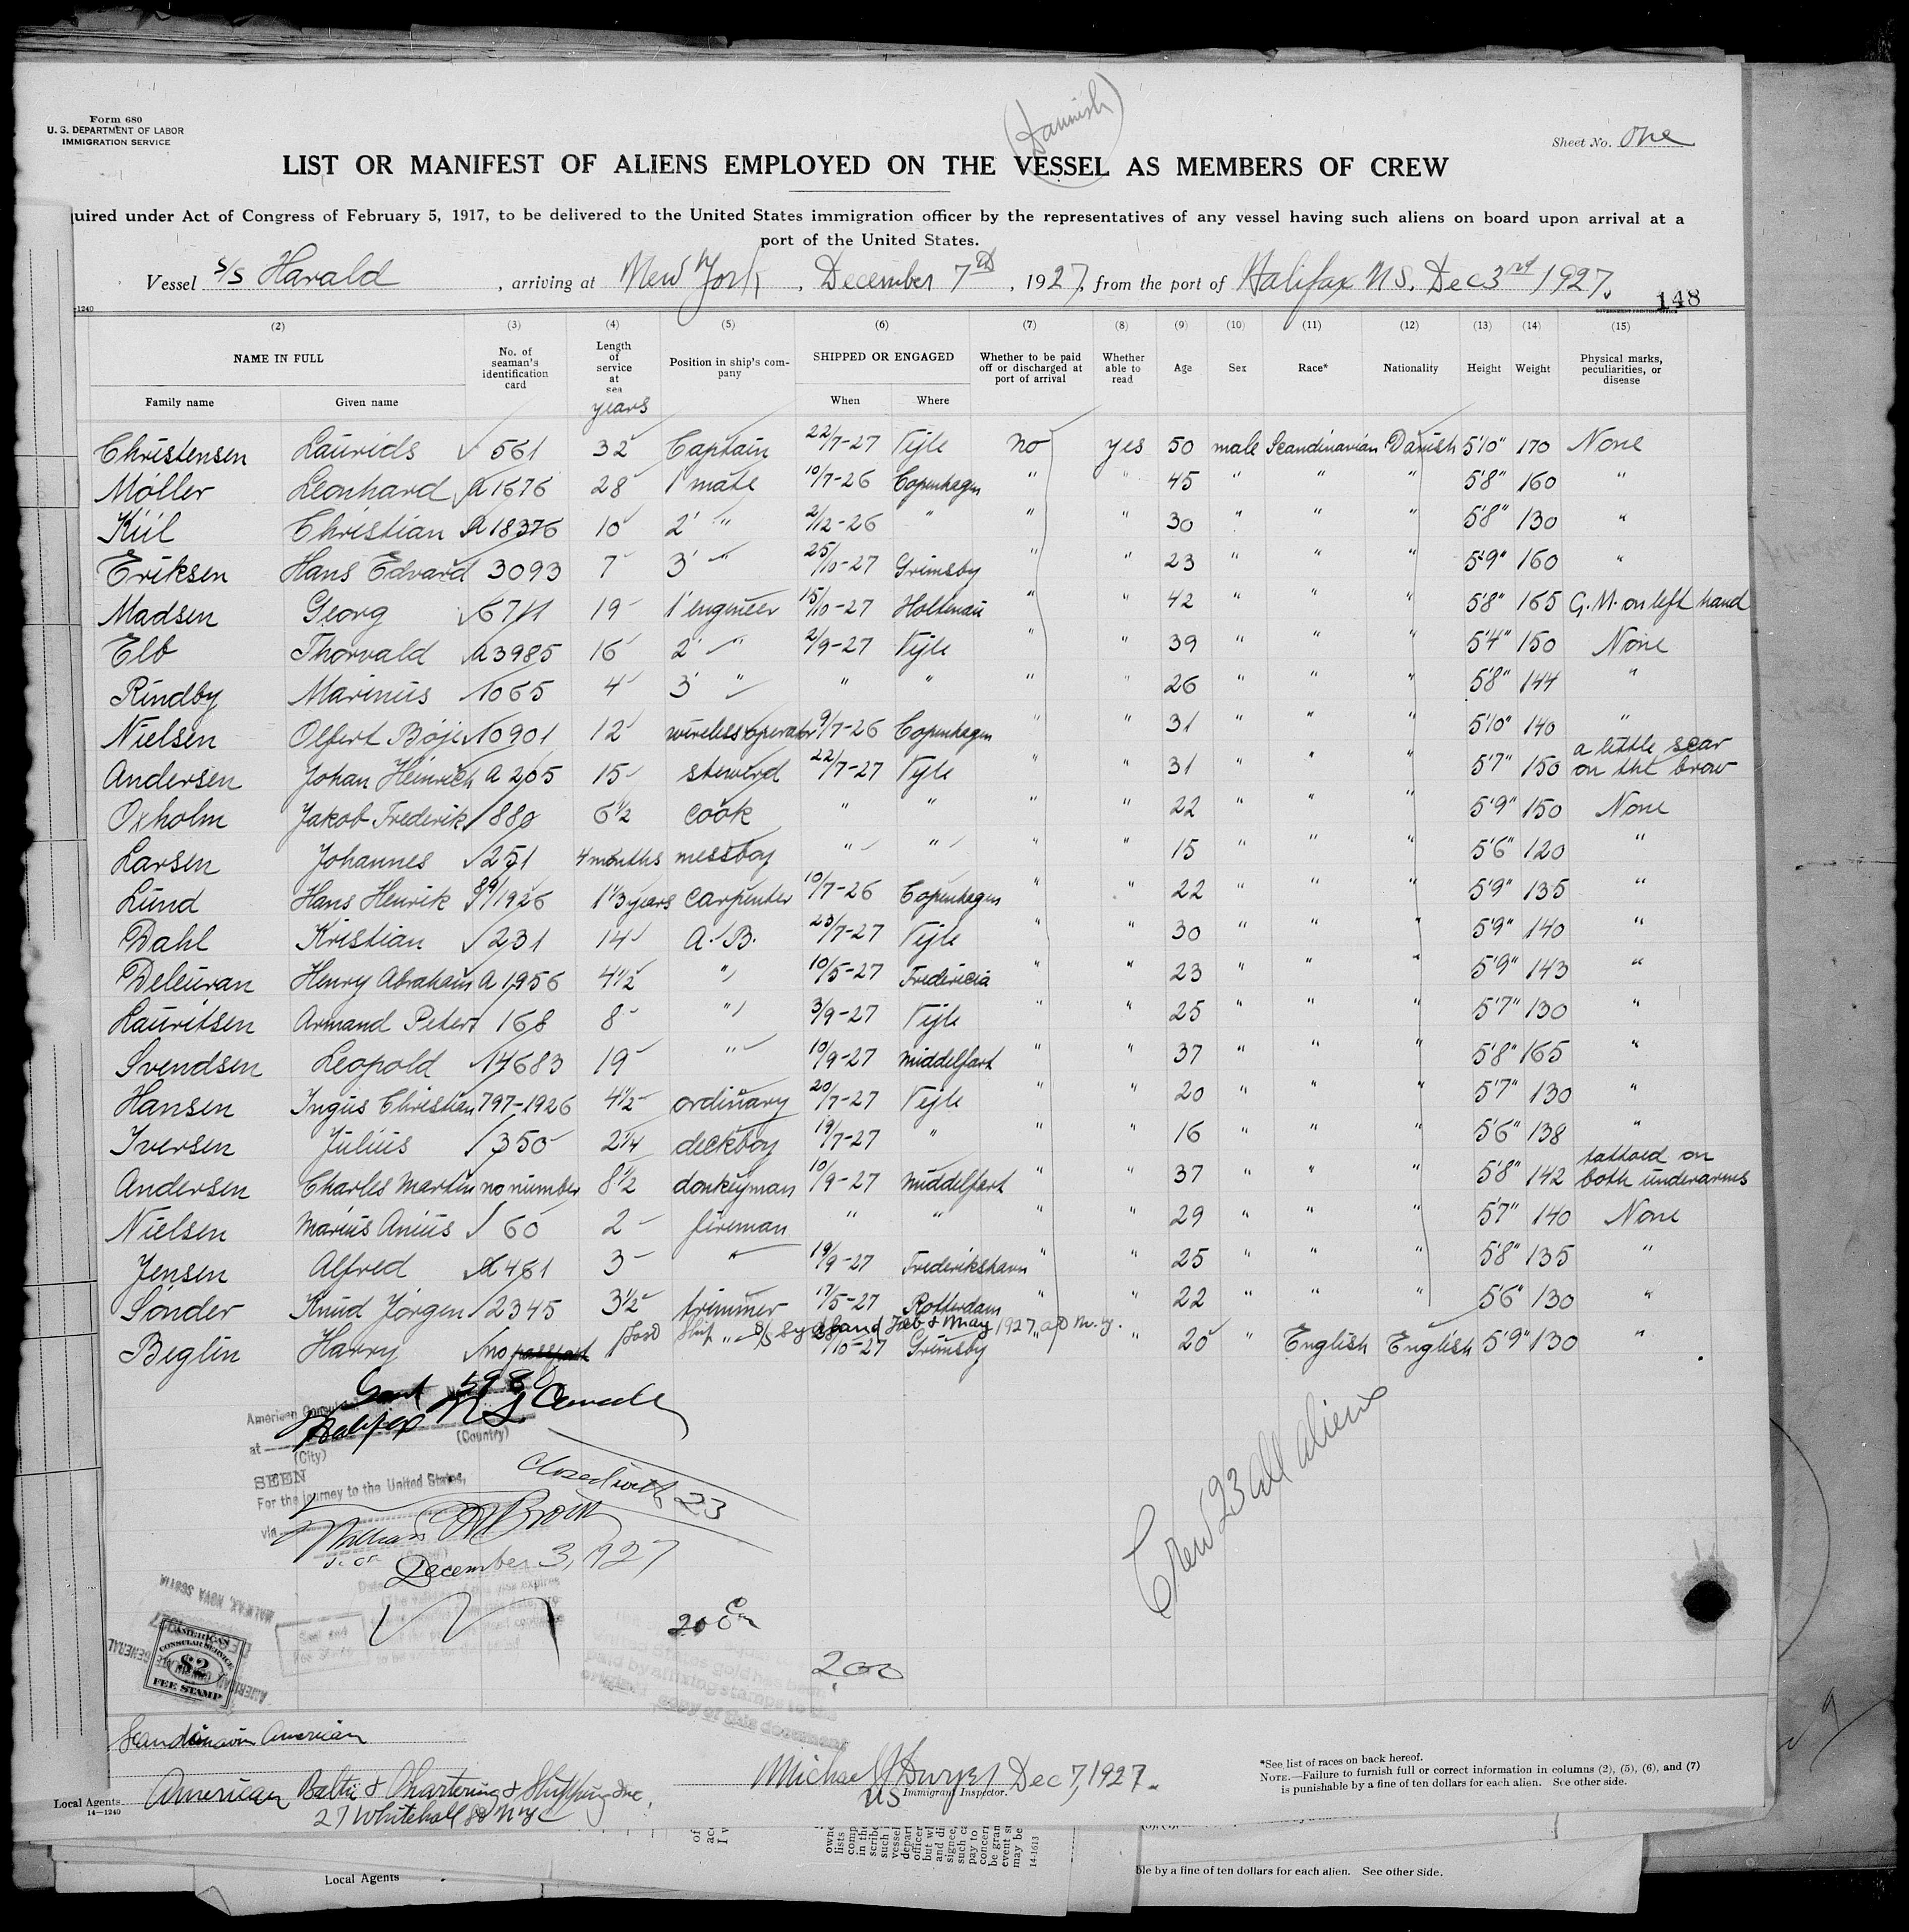 Form 680
U. S. DEPARTMENT OF LABOR
IMMIGRATION SERVICE
(Dannish)
Sheet No. One
LIST OR MANIFEST OF ALIENS EMPLOYED ON THE VESSEL AS MEMBERS OF CREW
uired under Act of Congress of February 5, 1917, to be delivered to the United States immigration officer by the representatives of any vessel having such aliens on board upon arrival at a
port of the United States.
Vessel S/S Harald, arriving at New York, December 7th, 1927, from the port of Halifax NS. Dec 3rd 1927.
148
(2) (3) (4) (5) (6) (7) (8) (9) (10) (11) (12) (13) (14) (15)
NAME IN FULL No. of seaman's identification card Length of service at sea Position in ship's company SHIPPED OR ENGAGED Whether to be paid off or discharged at port of arrival Whether able to read Age Sex Race* Nationality Height Weight Physical marks, peculiarities, or disease
Family name Given name years When Where
Christensen Laurids 561 32 Captain 22/7-27 Vejle no yes 50 male Scandinavian Danish 5'10" 170 None
Moller Leonhard A 1676 28 1' mate 10/7-26 Copenhagen " " 45 " " " 5'8" 160 "
Kiil Christian A 18376 10 2' " 2/12-26 " " " 30 " " " 5'8" 130 "
Eriksen Hans Edvard 3093 7 3' " 25/10-27 Grimsby " " 23 " " " 5'9" 160 "
Madsen Georg 6711 19 1' engineer 15/10-27 Holtenau " " 42 " " " 5'8" 165 G. M. on left hand
Elb Thorvald A 3985 16 2' " 2/9-27 Vejle " " 39 " " " 5'4" 150 None
Rindby Marinus 1065 4 3' " " " " " 26 " " " 5'8" 144 "
Nielsen Olfert Boje 10901 12 wireless operator 9/7-26 Copenhagen " " 31 " " " 5'10" 140 "
Andersen Johan Heinrich A 205 15 steward 22/7-27 Vejle " " 31 " " " 5'7" 150 a little scar on the brow
Oxholm Jakob Frederik 880 6½ cook " " " " 22 " " " 5'9" 150 None
Larsen Johannes 251 4 months messboy " " " " 15 " " " 5'6" 120 "
Lund Hans Henrik 89/1926 1 1/3 years carpenter 10/7-26 Copenhagen " " 22 " " " 5'9" 135 "
Dahl Kristian 231 14 A. B. 23/7-27 Vejle " " 30 " " " 5'9" 140 "
Deleuran Henry Abraham A 1956 4½ " 10/5-27 Fredericia " " 23 " " " 5'9" 143 "
Lauritsen Armand Peter 168 8 " 3/9-27 Vejle " " 25 " " " 5'7" 130 "
Svendsen Leopold 14683 19 " 10/9-27 Middelfart " " 37 " " " 5'8" 165 "
Hansen Ingus Christian 797-1926 4½ ordinary 20/7-27 Vejle " " 20 " " " 5'7" 130 "
Iversen Julius 350 2¼ deckboy 19/7-27 " " " 16 " " " 5'6" 138 "
Andersen Charles Martin no number 8½ donkeyman 10/9-27 Middelfart " " 37 " " " 5'8" 142 tattoed on both underarms
Nielsen Marius Anius 60 2 fireman " " " " 29 " " " 5'7" 140 None
Jensen Alfred A 461 3 " 19/9-27 Frederikshavn " " 25 " " " 5'8" 135 "
Sonder Knud Jorgen 2345 3½ trimmer 17/5-27 Rotterdam " " 22 " " " 5'6" 130 "
Feb & May 1927
Beglin Harry no passport " /10-27 Grimsby " " 20 " English English 5'9" 130 "
American Consul
at Halifax
(City) (Country)
SEEN
For the journey to the United States,
via
closed with 23
December 3, 1927
Crew 23 all aliens
200
HALIFAX, NOVA SCOTIA
AMERICAN CONSULAR SERVICE
$2
FEE STAMP
paid by affixing stamps to the
original copy of this document
Scandinavian American
Local Agents American Baltic & Chartering & Shipping Inc.
27 Whitehall St NYC
14-1240
Michael J Dwyer Dec 7, 1927.
US Immigrant Inspector.
*See list of races on back hereof.
NOTE.—Failure to furnish full or correct information in columns (2), (5), (6), and (7)
is punishable by a fine of ten dollars for each alien. See other side.
14-1613
ble by a fine of ten dollars for each alien. See other side.
Local Agents